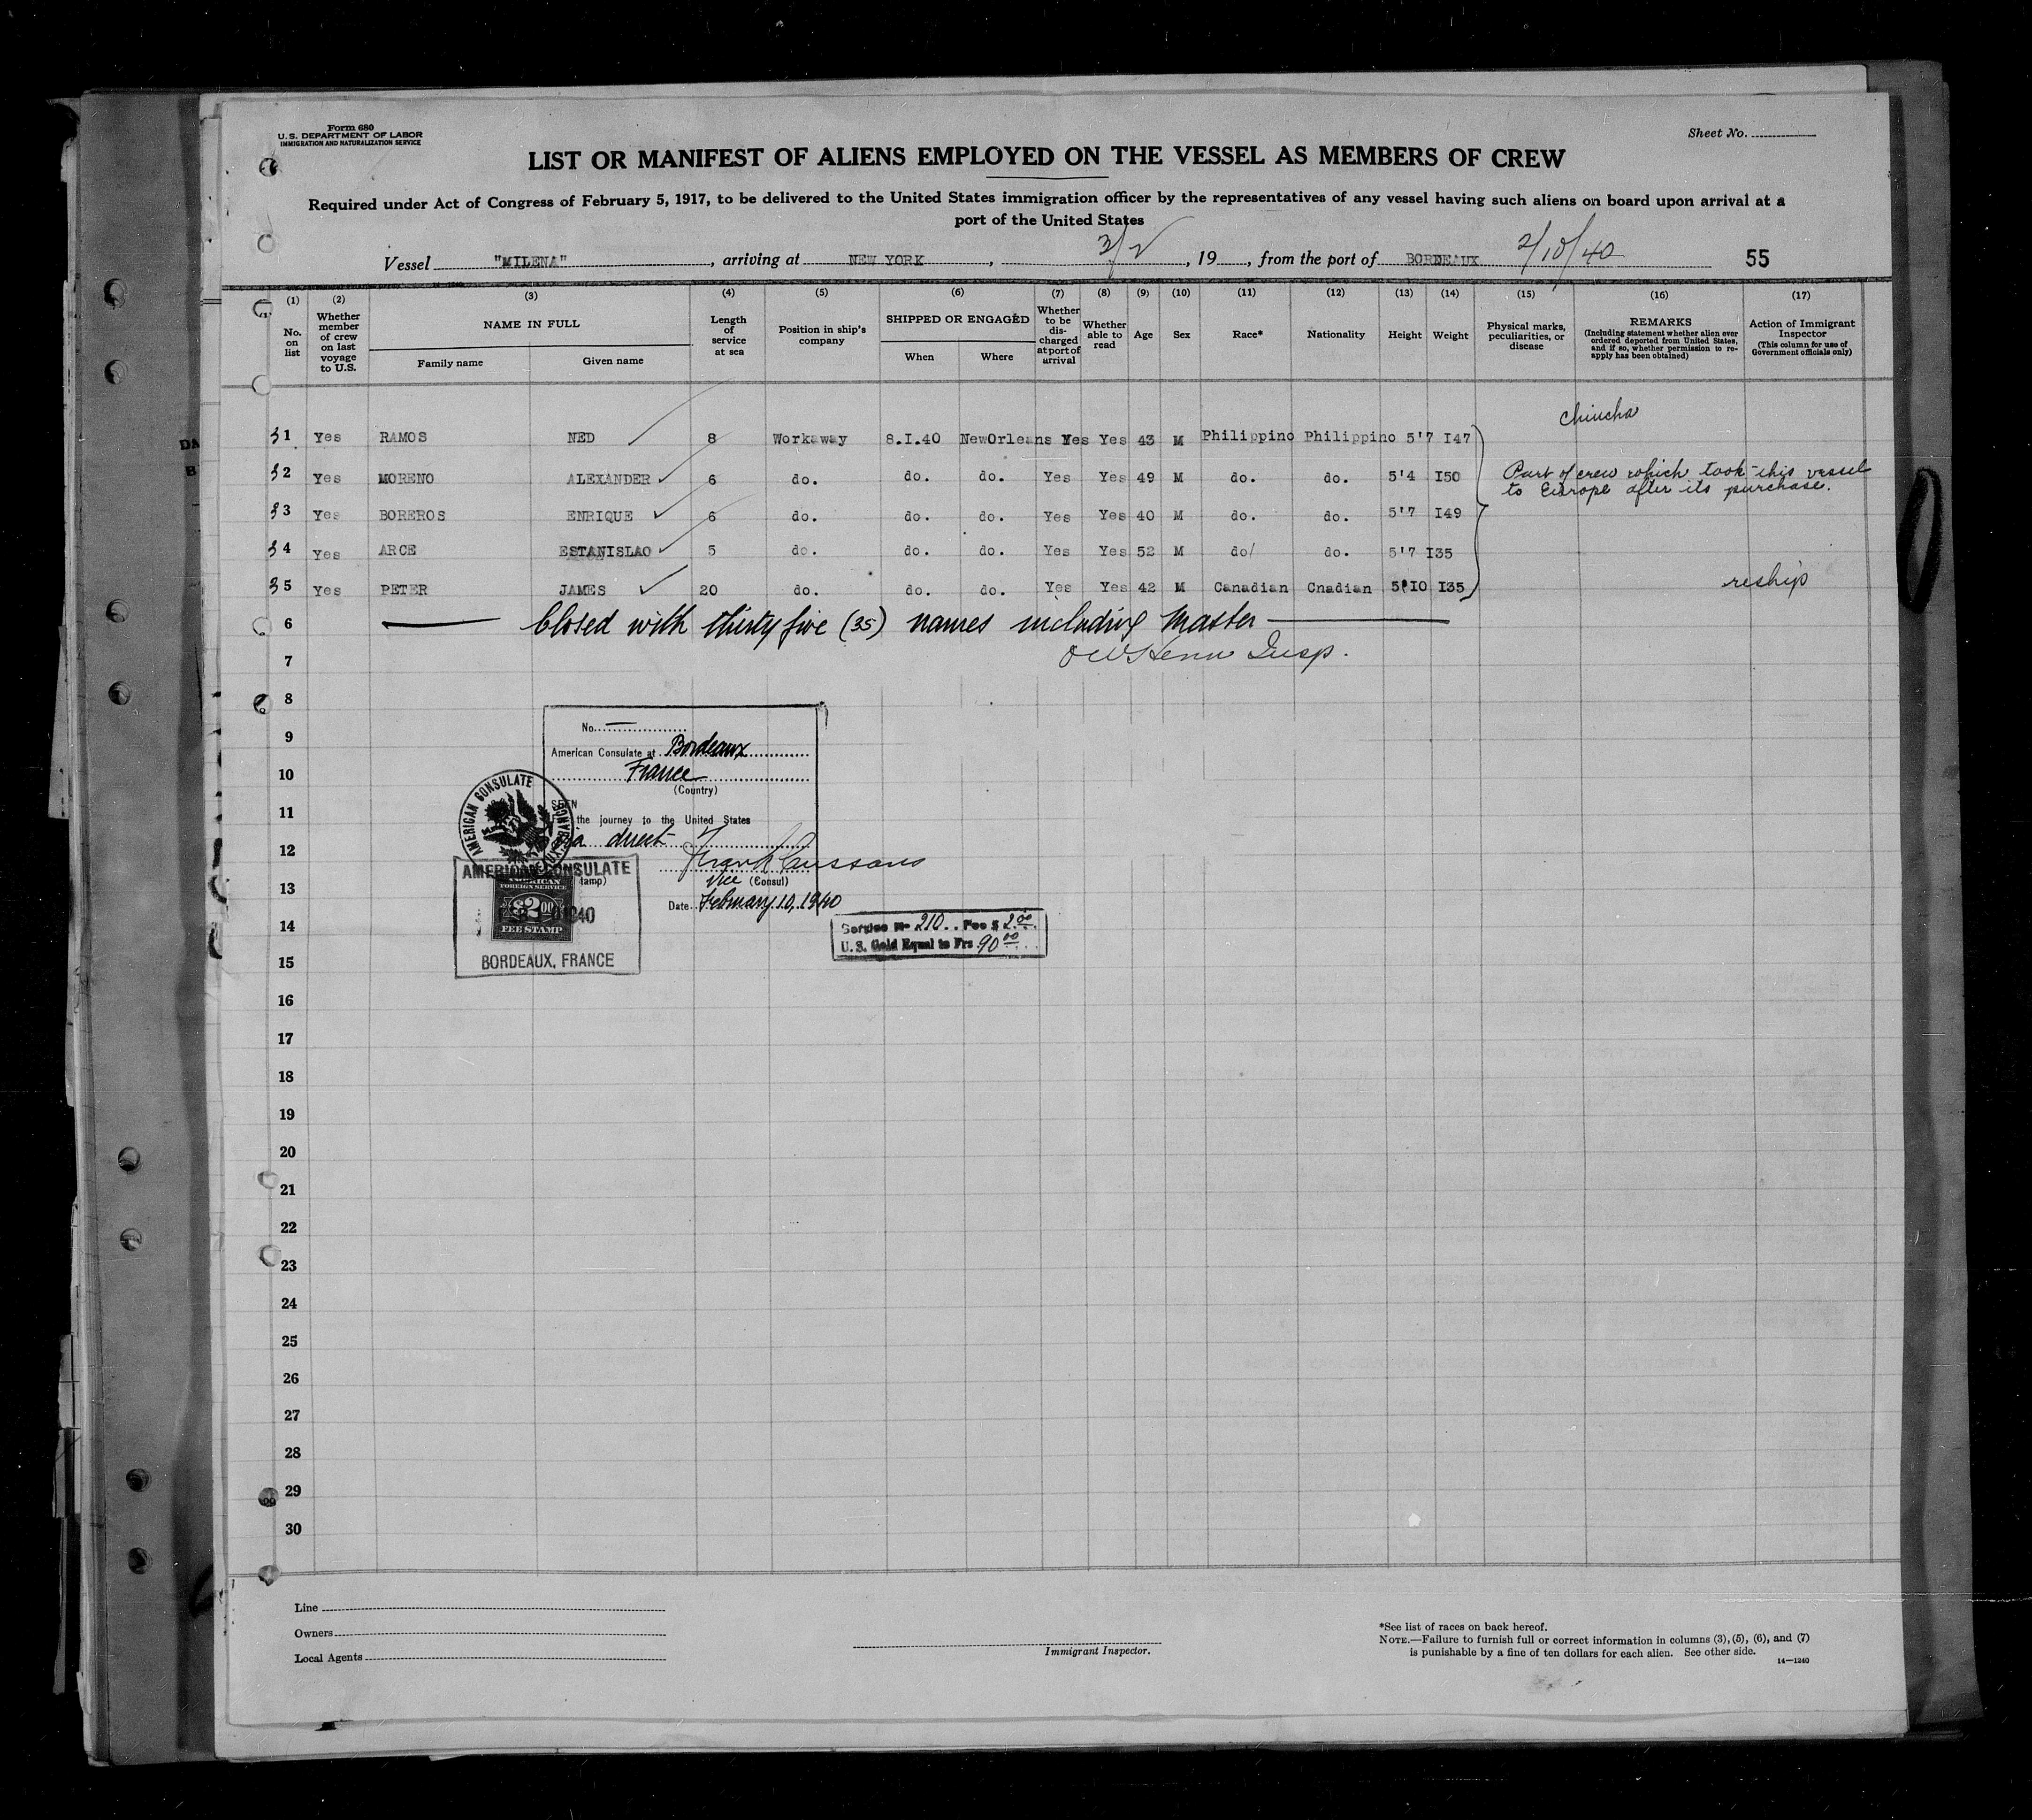 Form 680
U. S. DEPARTMENT OF LABOR
IMMIGRATION AND NATURALIZATION SERVICE
Sheet No.
LIST OR MANIFEST OF ALIENS EMPLOYED ON THE VESSEL AS MEMBERS OF CREW
Required under Act of Congress of February 5, 1917, to be delivered to the United States immigration officer by the representatives of any vessel having such aliens on board upon arrival at a
port of the United States
Vessel "MILENA", arriving at NEW YORK, 3/2, 19, from the port of BORDEAUX 2/10/40 55
14-1240
(1) (2) (3) (4) (5) (6) (7) (8) (9) (10) (11) (12) (13) (14) (15) (16) (17)
No. on list
Whether member of crew on last voyage to U.S.
NAME IN FULL
Family name
Given name
Length of service at sea
Position in ship's company
SHIPPED OR ENGAGED
When
Where
Whether to be discharged at port of arrival
Whether able to read
Age
Sex
Race*
Nationality
Height
Weight
Physical marks, peculiarities, or disease
REMARKS
(Including statement whether alien ever ordered deported from United States, and if so, whether permission to re-apply has been obtained)
Action of Immigrant Inspector
(This column for use of Government officials only)
chincha
31 Yes RAMOS NED 8 Workaway 8.I.40 NewOrleans Yes Yes 43 M Philippino Philippino 5'7 I47
32 Yes MORENO ALEXANDER 6 do. do. do. Yes Yes 49 M do. do. 5'4 I50
Part of crew which took this vessel
to Europe after its purchase.
33 Yes BOREROS ENRIQUE 6 do. do. do. Yes Yes 40 M do. do. 5'7 I49
34 Yes ARCE ESTANISLAO 5 do. do. do. Yes Yes 52 M do/ do. 5'7 I35
35 Yes PETER JAMES 20 do. do. do. Yes Yes 42 M Canadian Cnadian 5'IO I35 reship
6 Closed with thirty five (35) names including Master
7 Insp.
8
9
10
11
12
13
14
15
16
17
18
19
20
21
22
23
24
25
26
27
28
29
30
No.
American Consulate at Bordeaux
France
(Country)
SEEN
the journey to the United States
via direct
Frank
Vice (Consul)
Date February 10, 1940
AMERICAN CONSULATE
AMERICAN CONSULATE
AMERICAN
FOREIGN SERVICE
$2.00
FEE STAMP
BORDEAUX, FRANCE
Service No 210 Fee $ 2.00
U. S. Gold Equal to Frs. 90.00
Line
Owners
Local Agents
Immigrant Inspector.
*See list of races on back hereof.
NOTE.—Failure to furnish full or correct information in columns (3), (5), (6), and (7)
is punishable by a fine of ten dollars for each alien. See other side.
14—1240